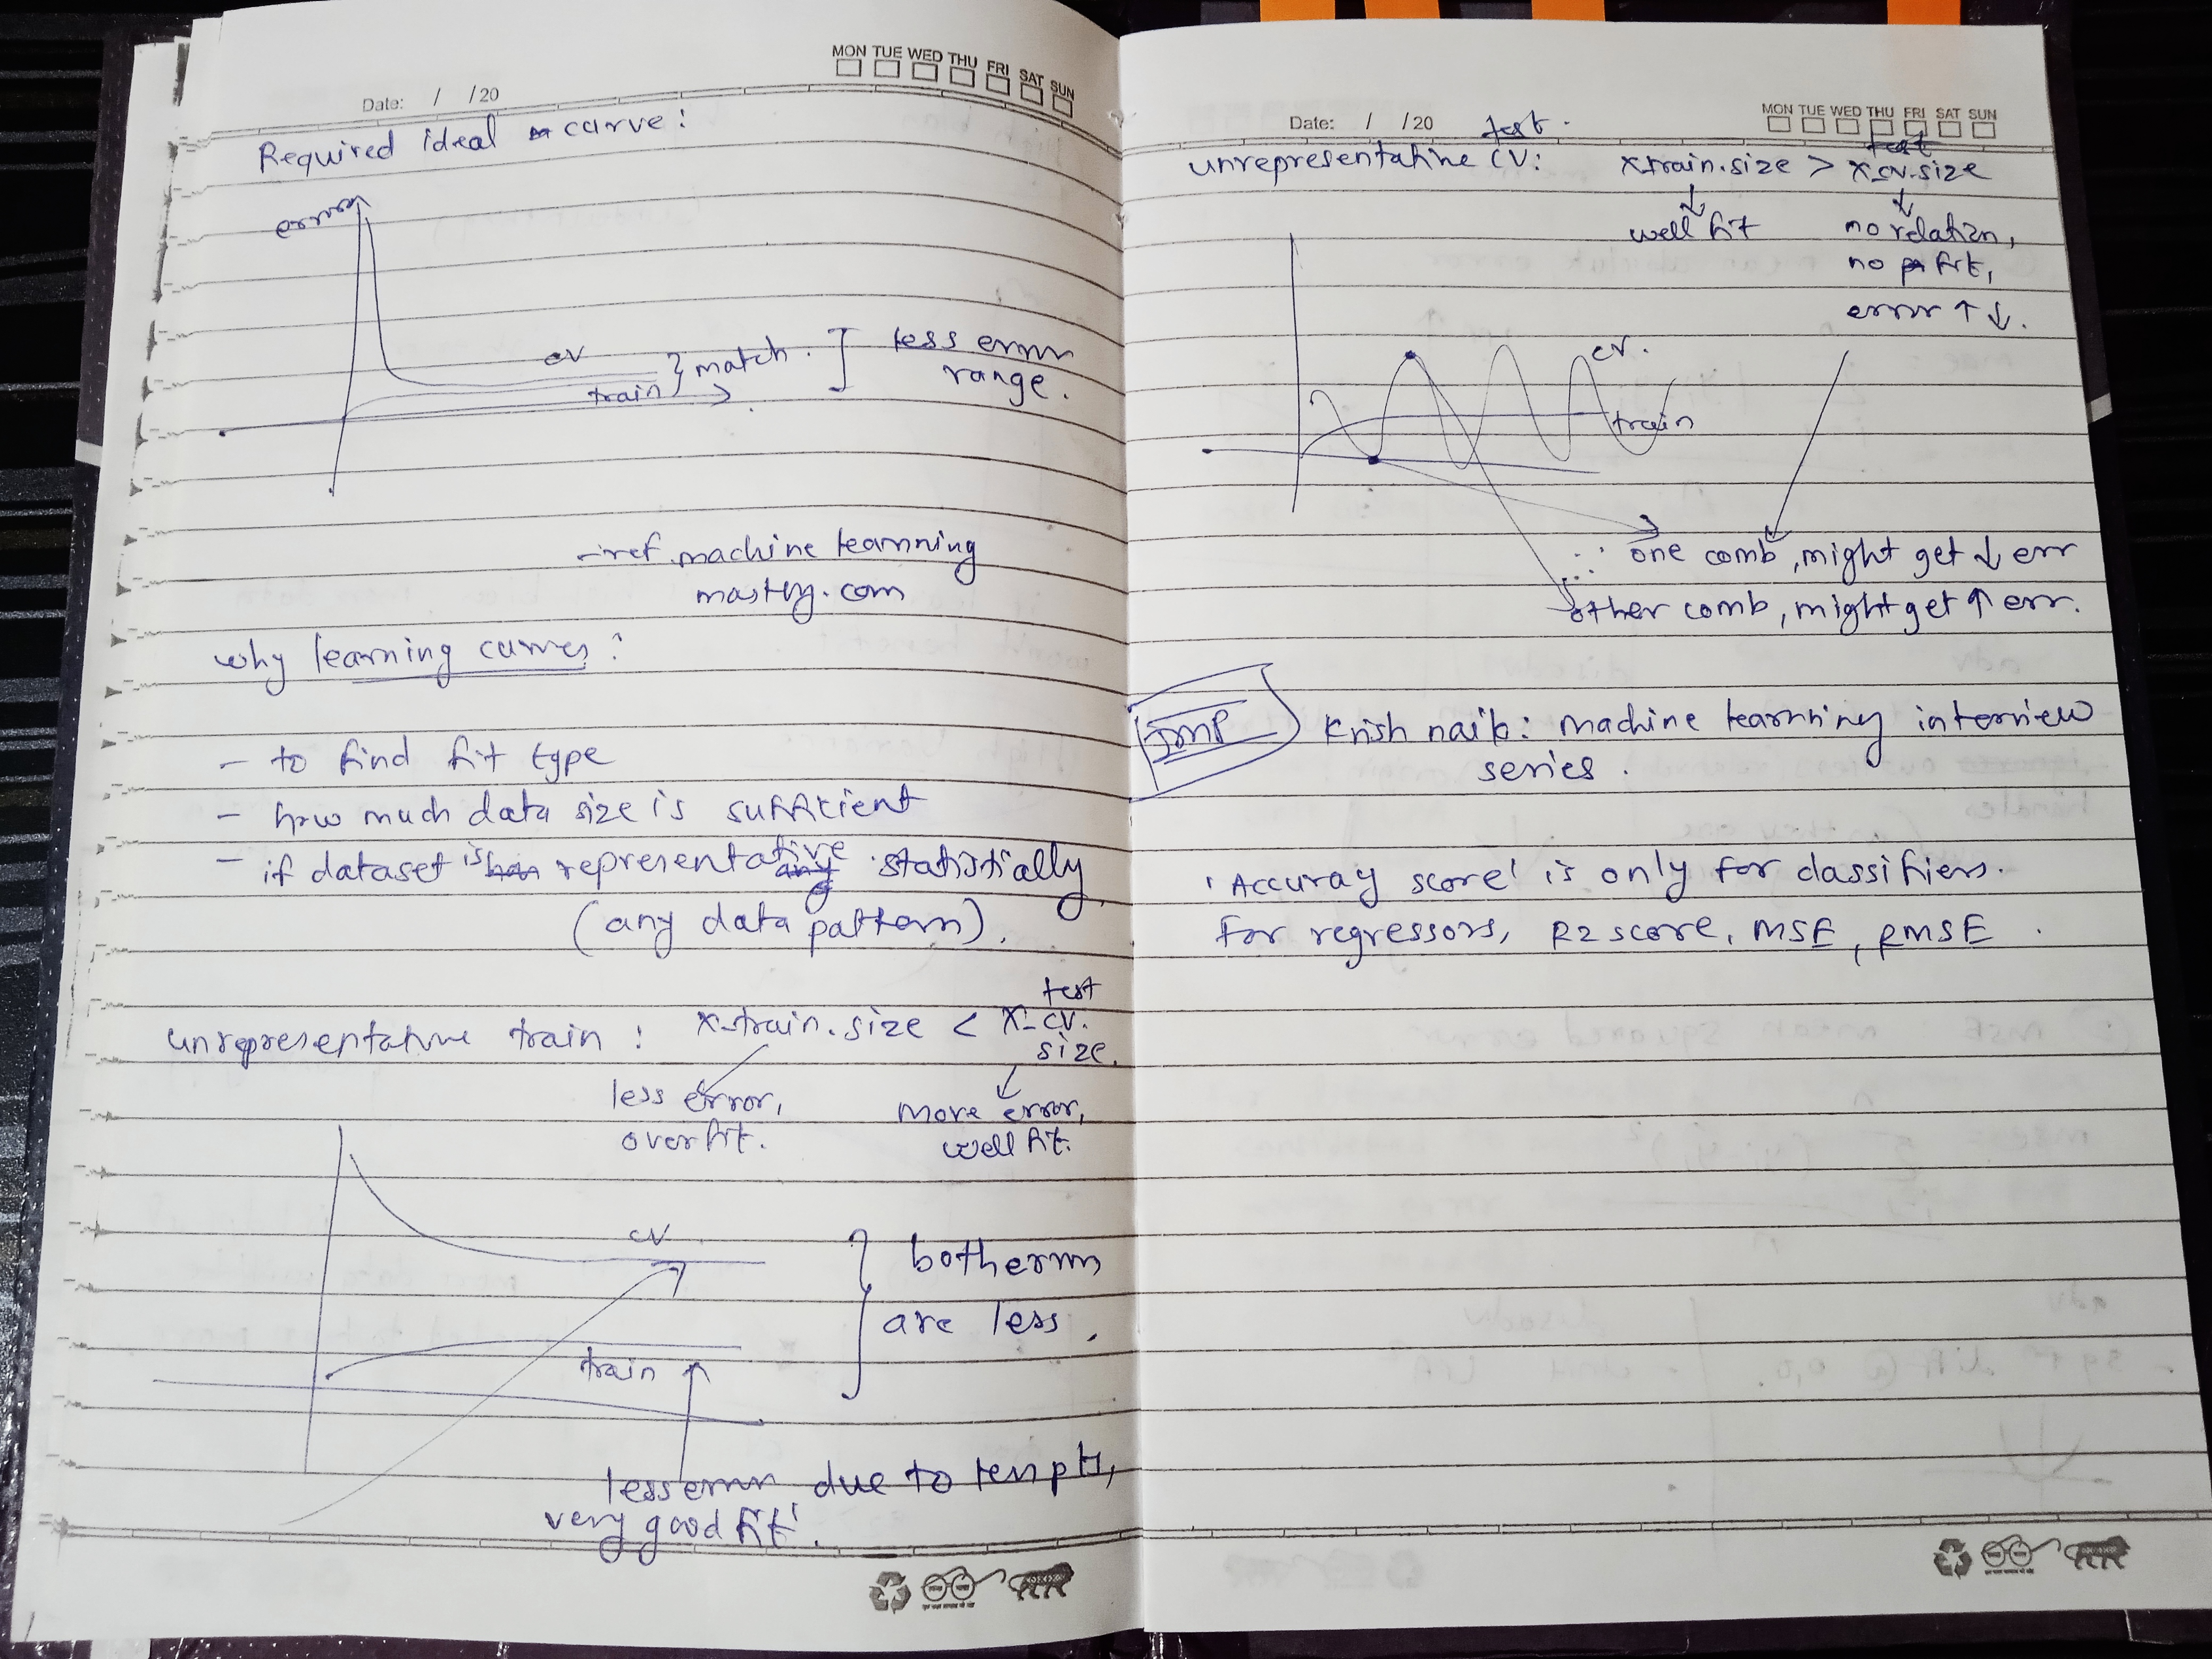 MON TUE WED THU FRI SAT SUN
Date: / /20
Required ideal curve:
error
cv
train
match.
less error
range.
- ref. machine learnning
mastery.com
why learning curves:
- to find fit type
- how much data size is sufficient
- if dataset is representative statistially
(any data pattern).
unrepresentative train : x-train.size < x-cv.
test
size.
less error,
overfit.
more error,
well fit.
cv
train
both errors
are less.
less error due to less pts,
very good fit.
MON TUE WED THU FRI SAT SUN
Date: / /20
test.
unrepresentative CV: x-train.size > x-cv.size
test
well fit
no relation,
no fit,
error ↑ ↓.
cv.
train
∴ one comb, might get ↓ err
other comb, might get ↑ err.
IMP
Krish naik: machine learnning interview
series.
'Accuray score' is only for classifiers.
for regressors, R2 score, MSE, RMSE.